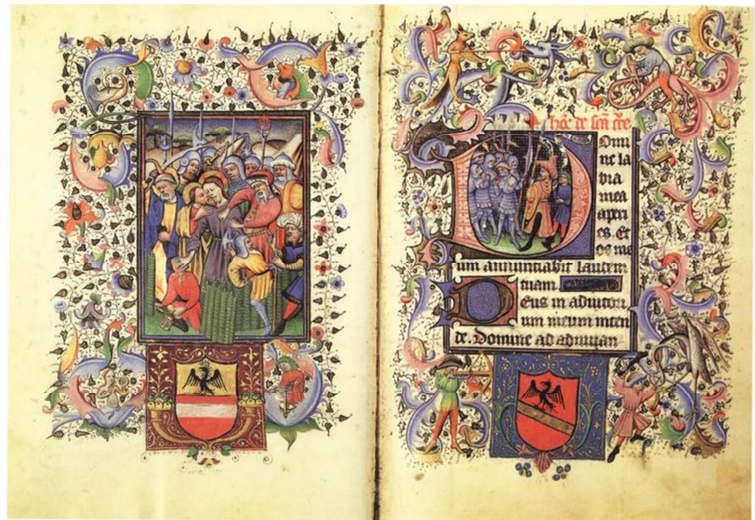 de
Domi
ne la
bia
mea
aperi
es. Et
os me
um annuntiabit laudem
tuam.
Deus in adiutori
um meum inten
de. Domine ad adiuuan